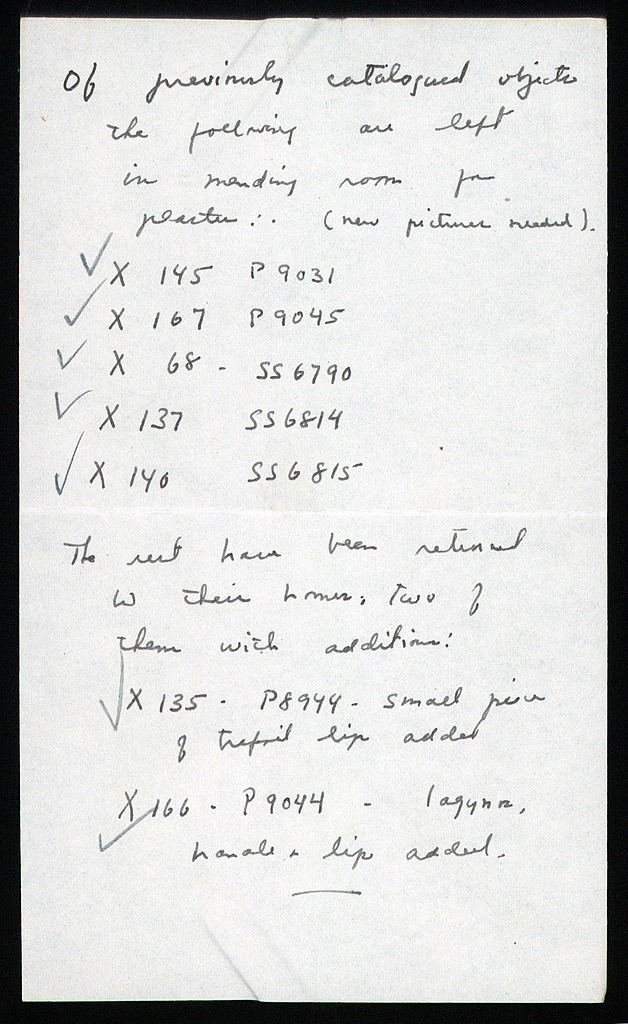 Of previously catalogued objects
the following are left
in mending room for
plaster:. (new pictures needed).
✓ X 145 P 9031
✓ X 167 P 9045
✓ X 68 - SS 6790
✓ X 137 SS 6814
✓ X 140 SS 6815
The rest have been returned
to their homes; two of
them with additions:
✓ X 135 - P8944 - small piece
of trefoil lip added
✓ X 166 - P 9044 - lagynos,
handle & lip added.